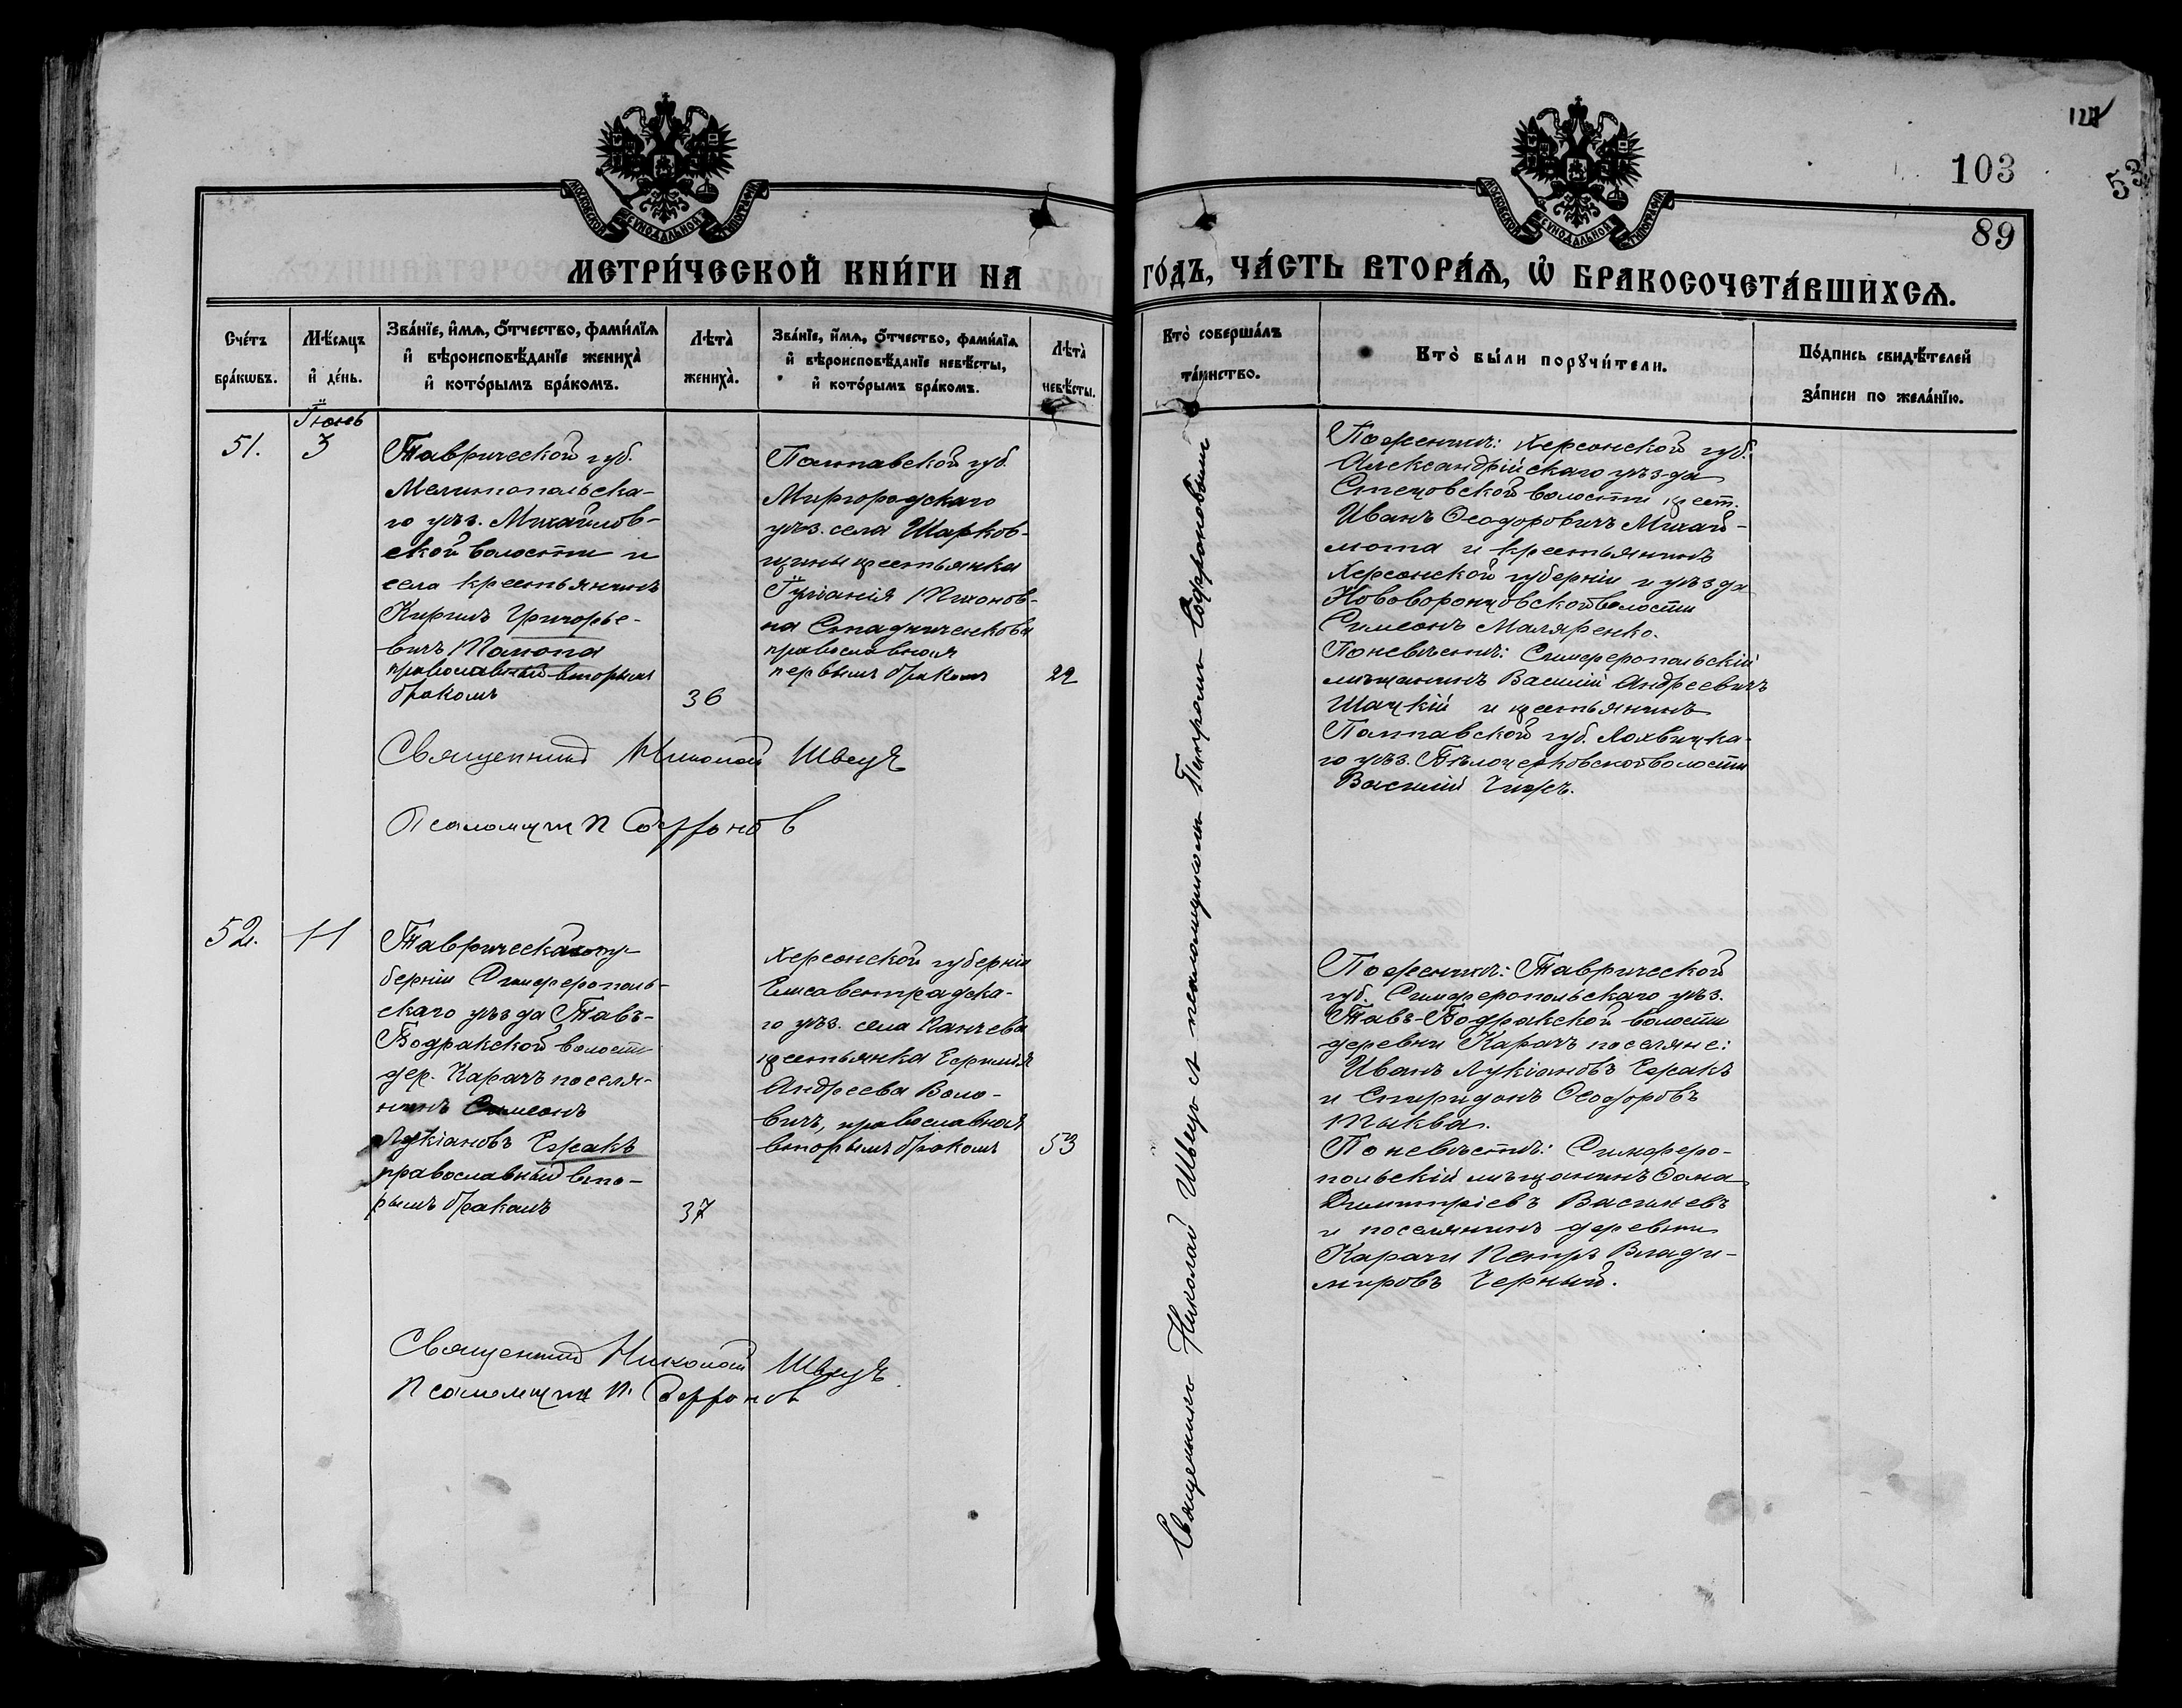 103
53
89
МОСКОВСКОЙ СѴНОДАЛЬНОЙ ТИПОГРАФІИ
МОСКОВСКОЙ СѴНОДАЛЬНОЙ ТИПОГРАФІИ
МЕТРИ́ЧЕСКОЙ КНИ́ГИ НА
ГО́ДЪ, ЧА́СТЬ ВТОРА́Я, Ѽ БРАКОСОЧЕТА́ВШИХСЯ.
Сче́тъ
бра́кѡвъ.
Мѣ́сяцъ
и҆ де́нь.
Зва́нїе, и҆́мя, ѻ҆́тчество, фами́лїя
и҆ вѣроисповѣ́данїе жениха̀
и҆ кото́рымъ бра́комъ.
Лѣта̀
жениха̀.
Зва́нїе, и҆́мя, ѻ҆́тчество, фами́лїя
и҆ вѣроисповѣ́данїе невѣ́сты,
и҆ кото́рымъ бра́комъ.
Лѣта̀
невѣ́сты.
Кто̀ соверша́лъ
та́инство.
Кто̀ бы́ли порꙋчи́тели.
По́дпись свидѣ́телей
за́писи по жела́нїю.
51.
Іюнь
3
Таврической губ.
Мелитопольска-
го уѣз. Михайлов-
ской волости и
села крестьянинъ
Кирилъ Григорье-
вичъ Палопа
православный вторымъ
бракомъ
36
Полтавской губ.
Миргородскаго
уѣз. села Шарков-
щины крестьянка
Іуліанія Тихонов-
на Стадниченкова
православная
первымъ бракомъ
22
Священникъ Николай Швецъ
Псаломщик П Софронов
Священникъ Николай Швецъ с псаломщикомъ Петромъ Софроновымъ
По женихѣ: Херсонской губ.
Александрійскаго уѣзда
Стецовской волости крест.
Иванъ Ѳеодоровичъ Михай-
лота и крестьянинъ
Херсонской губерніи и уѣзда
Нововоронцовской волости
Симеонъ Маляренко.
По невѣстѣ: Симферопольскій
мѣщанинъ Василій Андреевичъ
Шацкій и крестьянинъ
Полтавской губ. Лохвицка-
го уѣз. Бѣлоцерковской волости
Василій Чижъ.
52.
11
Таврической гу-
берніи Симферополь-
скаго уѣзда Тавъ-
Бодракской волости
дер. Карачъ поселя-
нинъ Симеонъ
Лукіановъ Ержакъ
православный вто-
рымъ бракомъ
37
Херсонской губерніи
Елисаветградска-
го уѣз. села Панчева
крестьянка Ефимія
Андреева Воло-
вичъ, православная
вторымъ бракомъ
53
Священникъ Николай Швецъ
Псаломщик П. Софронов
По женихѣ: Таврической
губ. Симферопольскаго уѣз.
Тавъ-Бодракской волости
деревни Карачъ поселяне:
Иванъ Лукіановъ Ержакъ
и Спиридонъ Ѳеодоровъ
Тыква.
По невѣстѣ: Симферо-
польскій мѣщанинъ Ѳома
Димитріевъ Васильевъ
и поселянинъ деревни
Карачи Петръ Влади-
мировъ Черный.